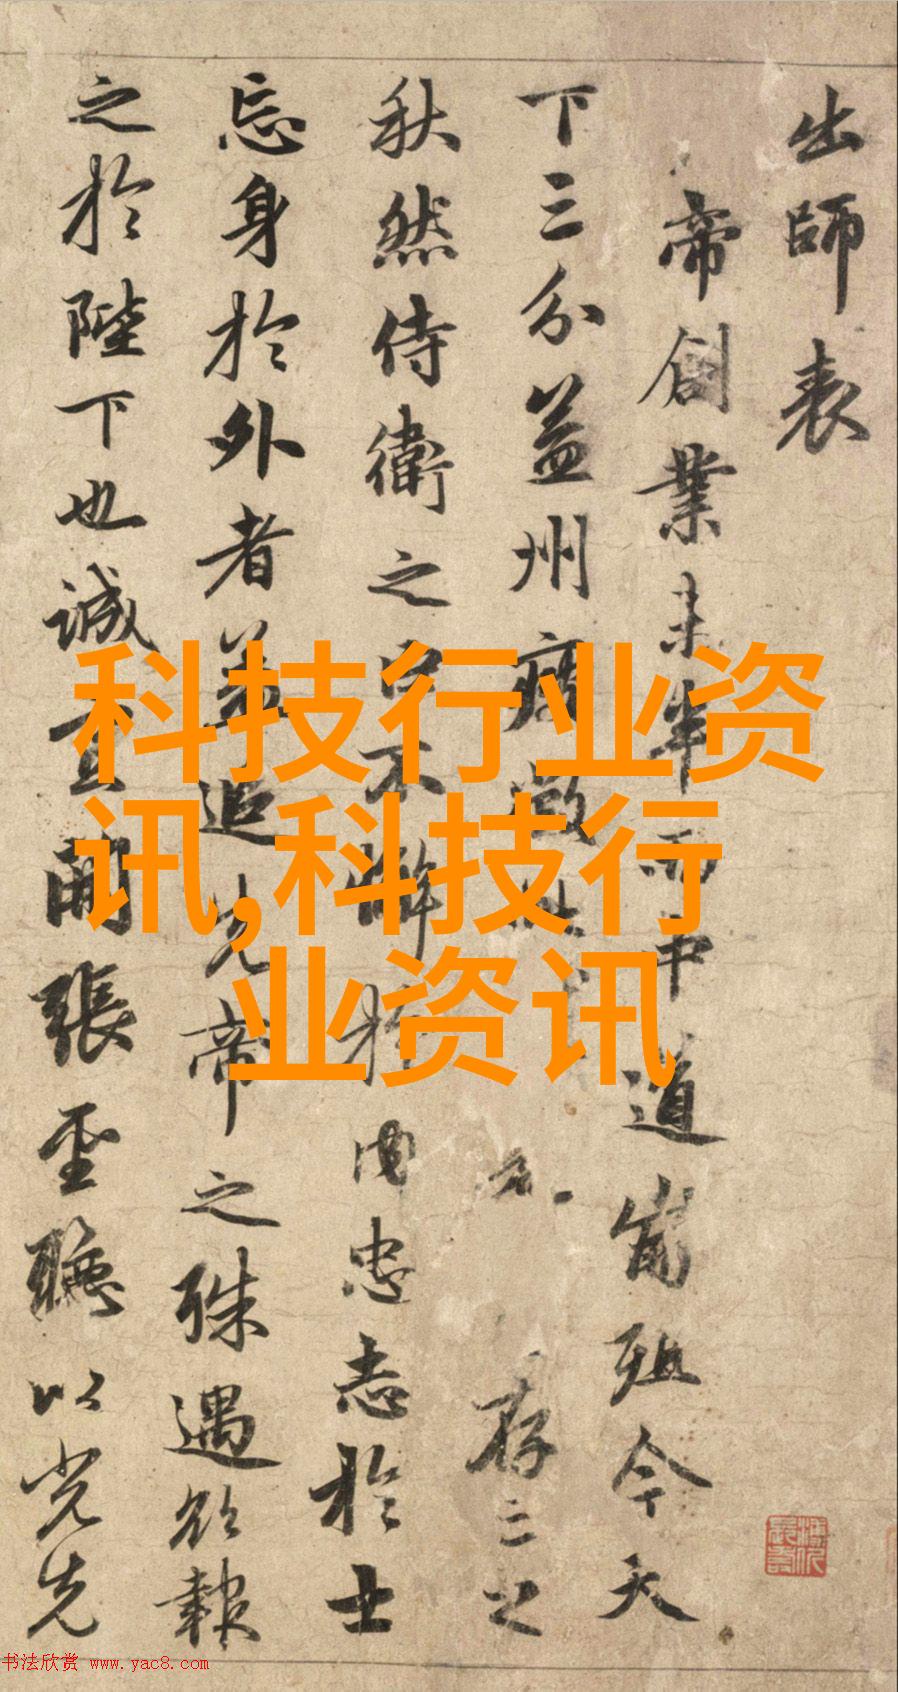 出師表
帝創業未半而中道崩殂今天
下三分益州疲敝此存亡之
秋然侍衛之臣不懈於内忠志於士
忘身於外者蓋追先帝之殊遇欲報
之於陛下也誠宜開張聖聽以光先
科技行业资
讯,科技行
业资讯
书法欣赏 www.yac8.com